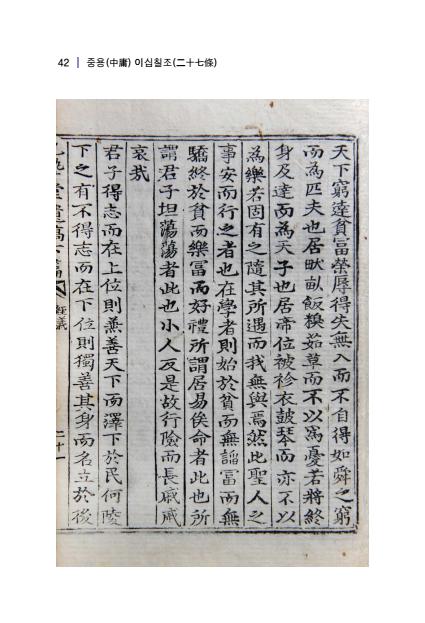 42 | 중용(中庸) 이십칠조(二十七條)
天下窮達貧富榮辱得失無入而不自得如舜之窮
而為匹夫也居畎畝飯糗茹草而不以為憂若將終
身及達而為天子也居帝位被袗衣鼓琴而亦不以
為樂若固有之隨其所遇而我無與焉然此聖人之
事安而行之者也在學者則始於貧而無諂富而無
驕終於貧而樂富而好禮所謂居易俟命者此也所
謂君子坦蕩蕩者此也小人反是故行險而長戚戚
哀哉
君子得志而在上位則兼善天下而澤下於民何陵
下之有不得志而在下位則獨善其身而名立於後
堂遺稿下篇 經議 二十一